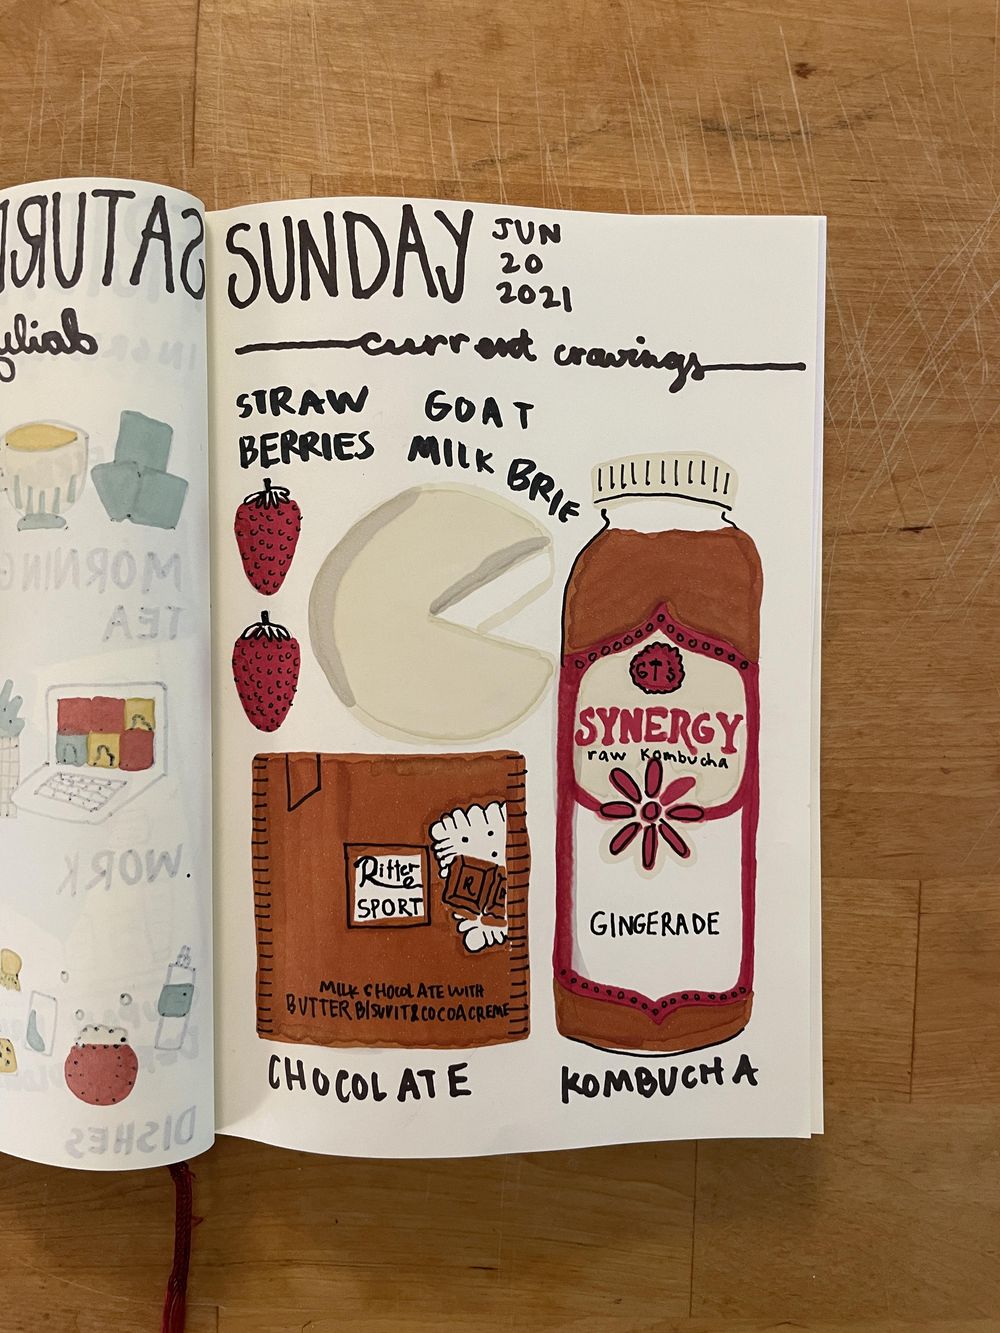 SUNDAY
JUN
20
2021
current cravings
STRAW
BERRIES
GOAT
MILK BRIE
GT's
SYNERGY
raw kombucha
GINGERADE
Ritter
SPORT
R
MILK CHOCOLATE WITH
BUTTER BISUVIT & COCOA CREME
CHOCOLATE
KOMBUCHA
MORNING
TEA
WORK
DISHES